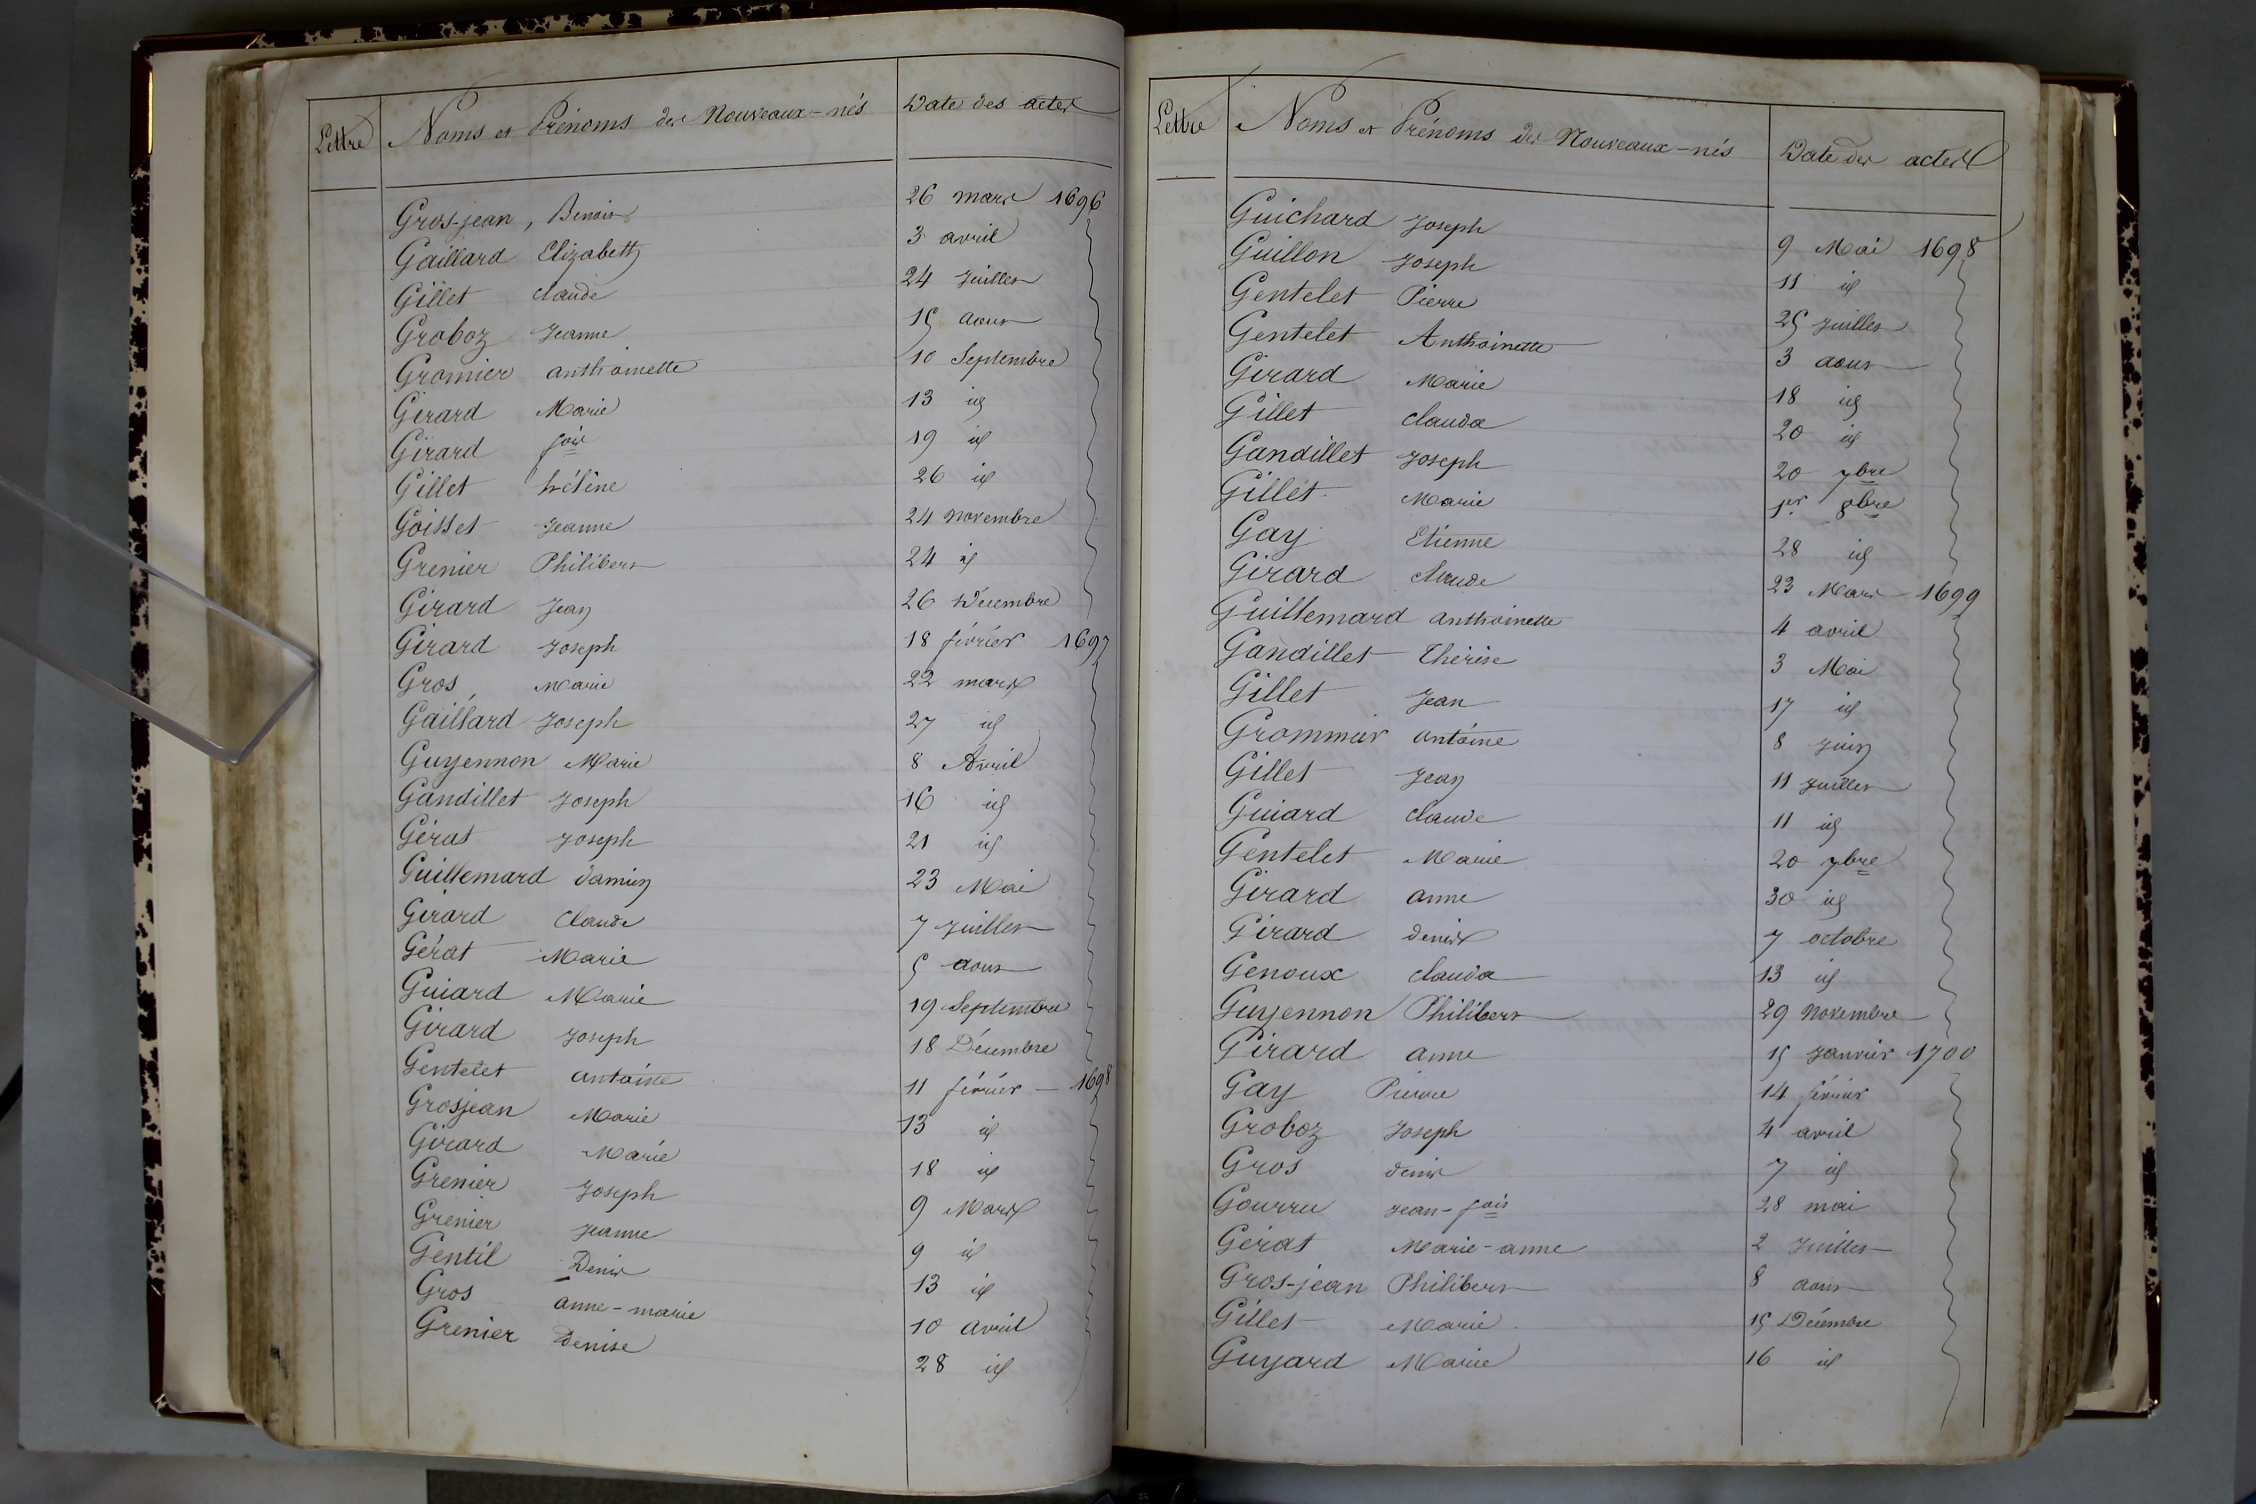 Lettre Noms et Prénoms des Nouveaux-nés Date des actes
Gros-jean, Benoit 26 mars 1696
Gaillard Elizabeth 3 avril
Gillet claude 24 Juillet
Groboz Jeanne 15 aout
Gromier anthoinette 10 Septembre
Girard Marie 13 id
Girard fois 19 id
Gillet hélène 26 id
Goisset Jeanne 24 Novembre
Grenier Philibert 24 id
Girard Jean 26 Décembre
Girard Joseph 18 février 1697
Gros Marie 22 mars
Gaillard Joseph 27 id
Guyennon Marie 8 Avril
Gandillet Joseph 16 id
Gérat Joseph 21 id
Guillemard damien 23 Mai
Girard Claude 7 Juillet
Gérat Marie 5 aout
Guiard Marie 19 Septembre
Girard Joseph 18 Décembre
Gentelet antoine 11 février - 1698
Grosjean Marie 13 id
Girard Marie 18 id
Grenier Joseph 9 Mars
Grenier Jeanne 9 id
Gentil Denis 13 id
Gros anne-marie 10 avril
Grenier Denise 28 id
Lettre Noms et Prénoms des Nouveaux-nés Date des actes
Guichard Joseph 9 Mai 1698
Guillon Joseph 11 id
Gentelet Pierre 25 Juillet
Gentelet Anthoinette 3 aout
Girard Marie 18 id
Gillet Clauda 20 id
Gandillet Joseph 20 7bre
Gillet Marie 1er 8bre
Gay Etienne 28 id
Girard Claude 23 Mars - 1699
Guillemard anthoinette 4 avril
Gandillet Thérèse 3 Mai
Gillet Jean 17 id
Grommier antoine 8 Juin
Gillet Jean 11 Juillet
Guiard Claude 11 id
Gentelet Marie 20 7bre
Girard anne 30 id
Girard denis 7 octobre
Genoux Clauda 13 id
Guyennon Philibert 29 Novembre
Girard anne 15 Janvier 1700
Gay Pierre 14 février
Groboz Joseph 4 avril
Gros denis 7 id
Gourru Jean-fois 28 mai
Gérat Marie-anne 2 Juillet
Gros-jean Philibert 8 aout
Gillet Marie 15 Décembre
Guyard Marie 16 id